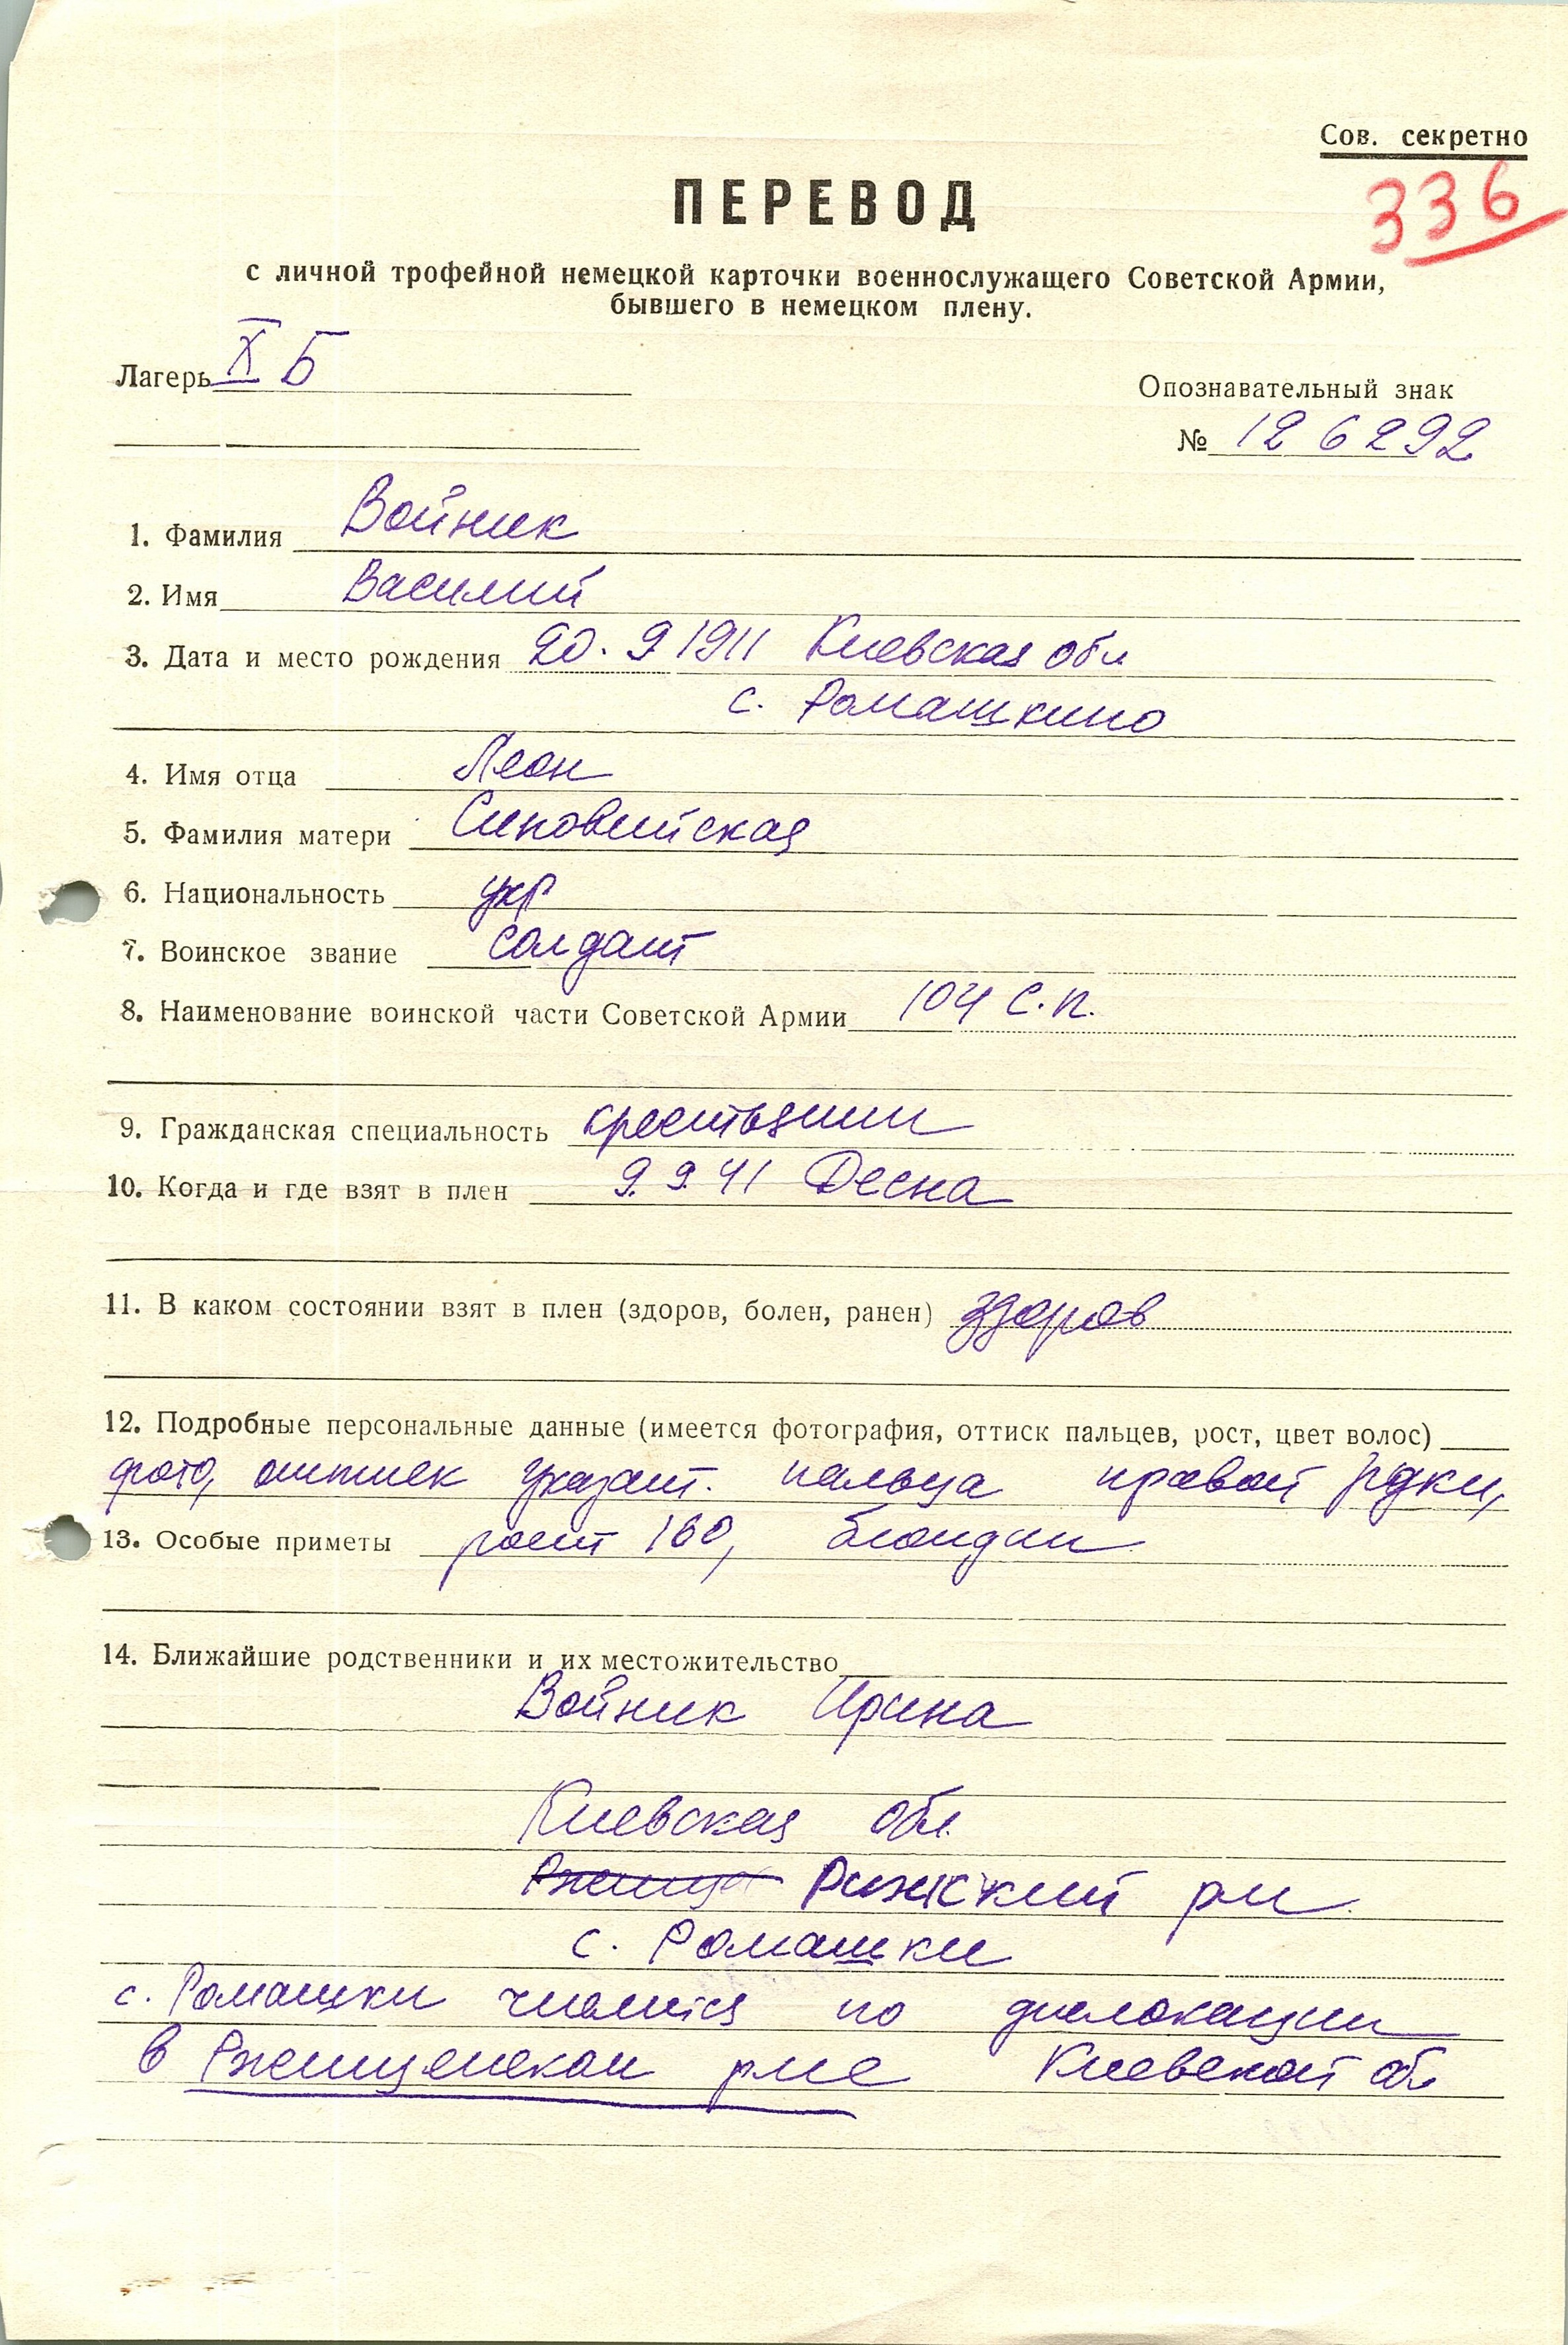 Сов. секретно
336
ПЕРЕВОД
с личной трофейной немецкой карточки военнослужащего Советской Армии,
бывшего в немецком плену.
Лагерь X Б
Опознавательный знак
№ 126292
1. Фамилия Войник
2. Имя Василий
3. Дата и место рождения 20.9 1911 Киевская обл
с. Ромашкино
4. Имя отца Леон
5. Фамилия матери Синовийская
6. Национальность укр
7. Воинское звание солдат
8. Наименование воинской части Советской Армии 104 с.п.
9. Гражданская специальность крестьянин
10. Когда и где взят в плен 9.9.41 Десна
11. В каком состоянии взят в плен (здоров, болен, ранен) здоров
12. Подробные персональные данные (имеется фотография, оттиск пальцев, рост, цвет волос)
фото, оттиск указат. пальца правой руки,
13. Особые приметы рост 160, блондин
14. Ближайшие родственники и их местожительство
Войник Ирина
Киевская обл.
Ржищев Рижский рн.
с. Ромашки
с. Ромашки числится по дислокации
в Ржищевском рне Киевской обл